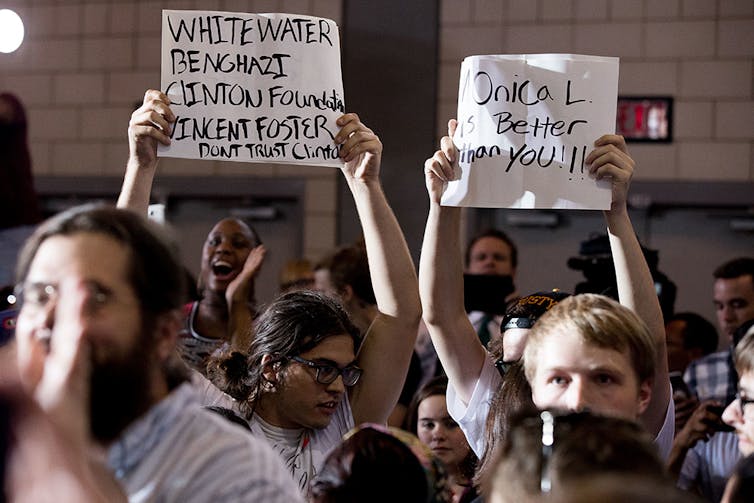 WHITEWATER
BENGHAZI
CLINTON FOUNDATION
VINCENT FOSTER
DONT TRUST CLINTON
MONICA L.
is Better
than YOU!!!